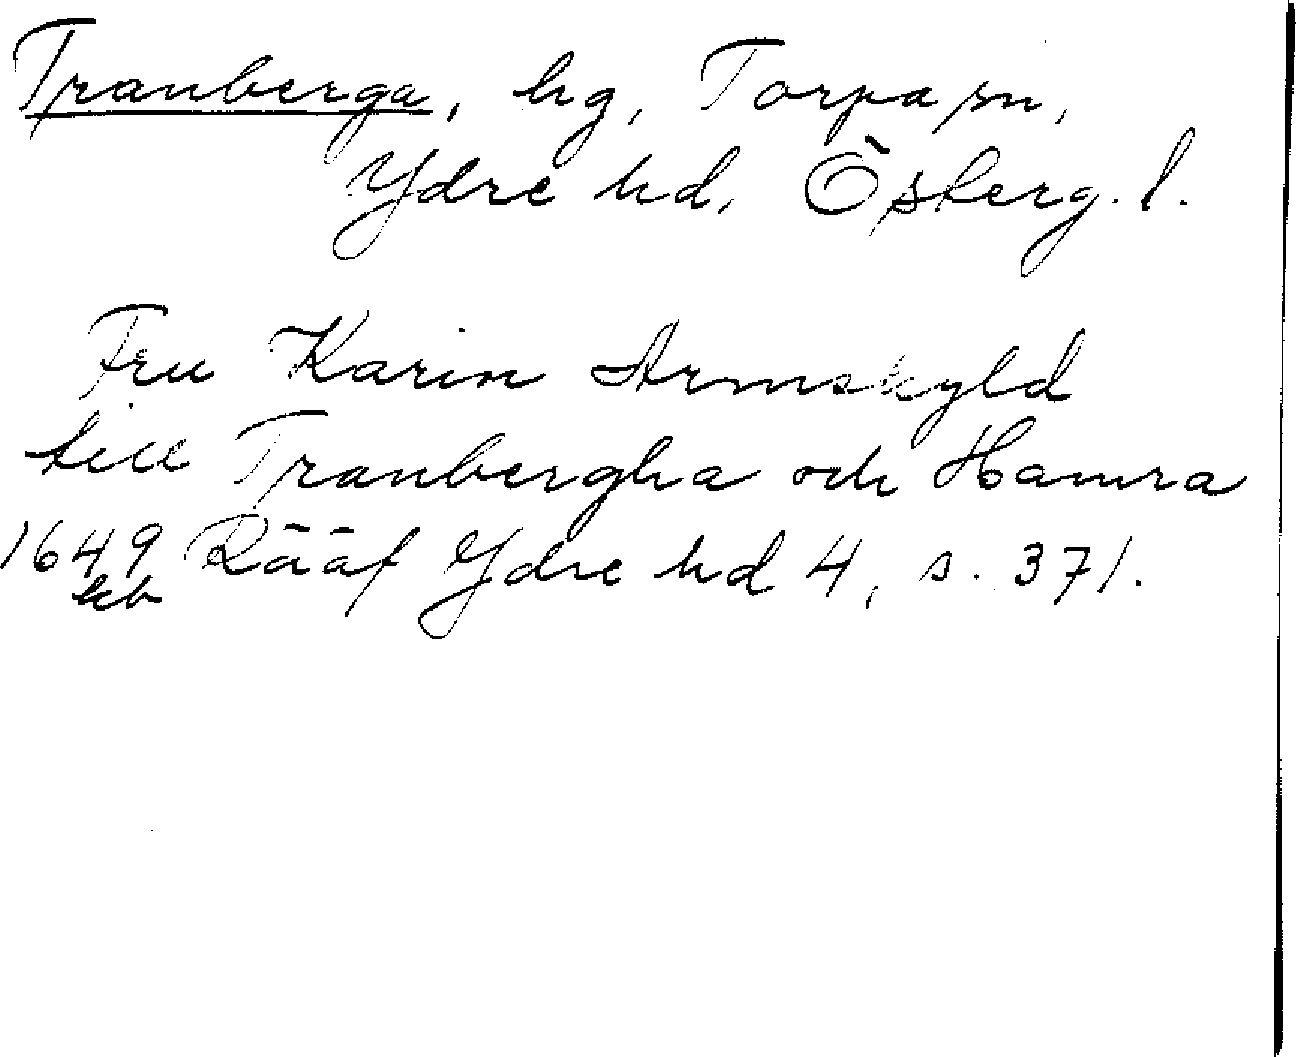 Tranberga, hg, Torpa sn,
Ydre hd, Österg. l.
Fru Karin Armskyld
till Tranbergha och Hamra
1649 Rääf Ydre hd 4, s. 371.
kb